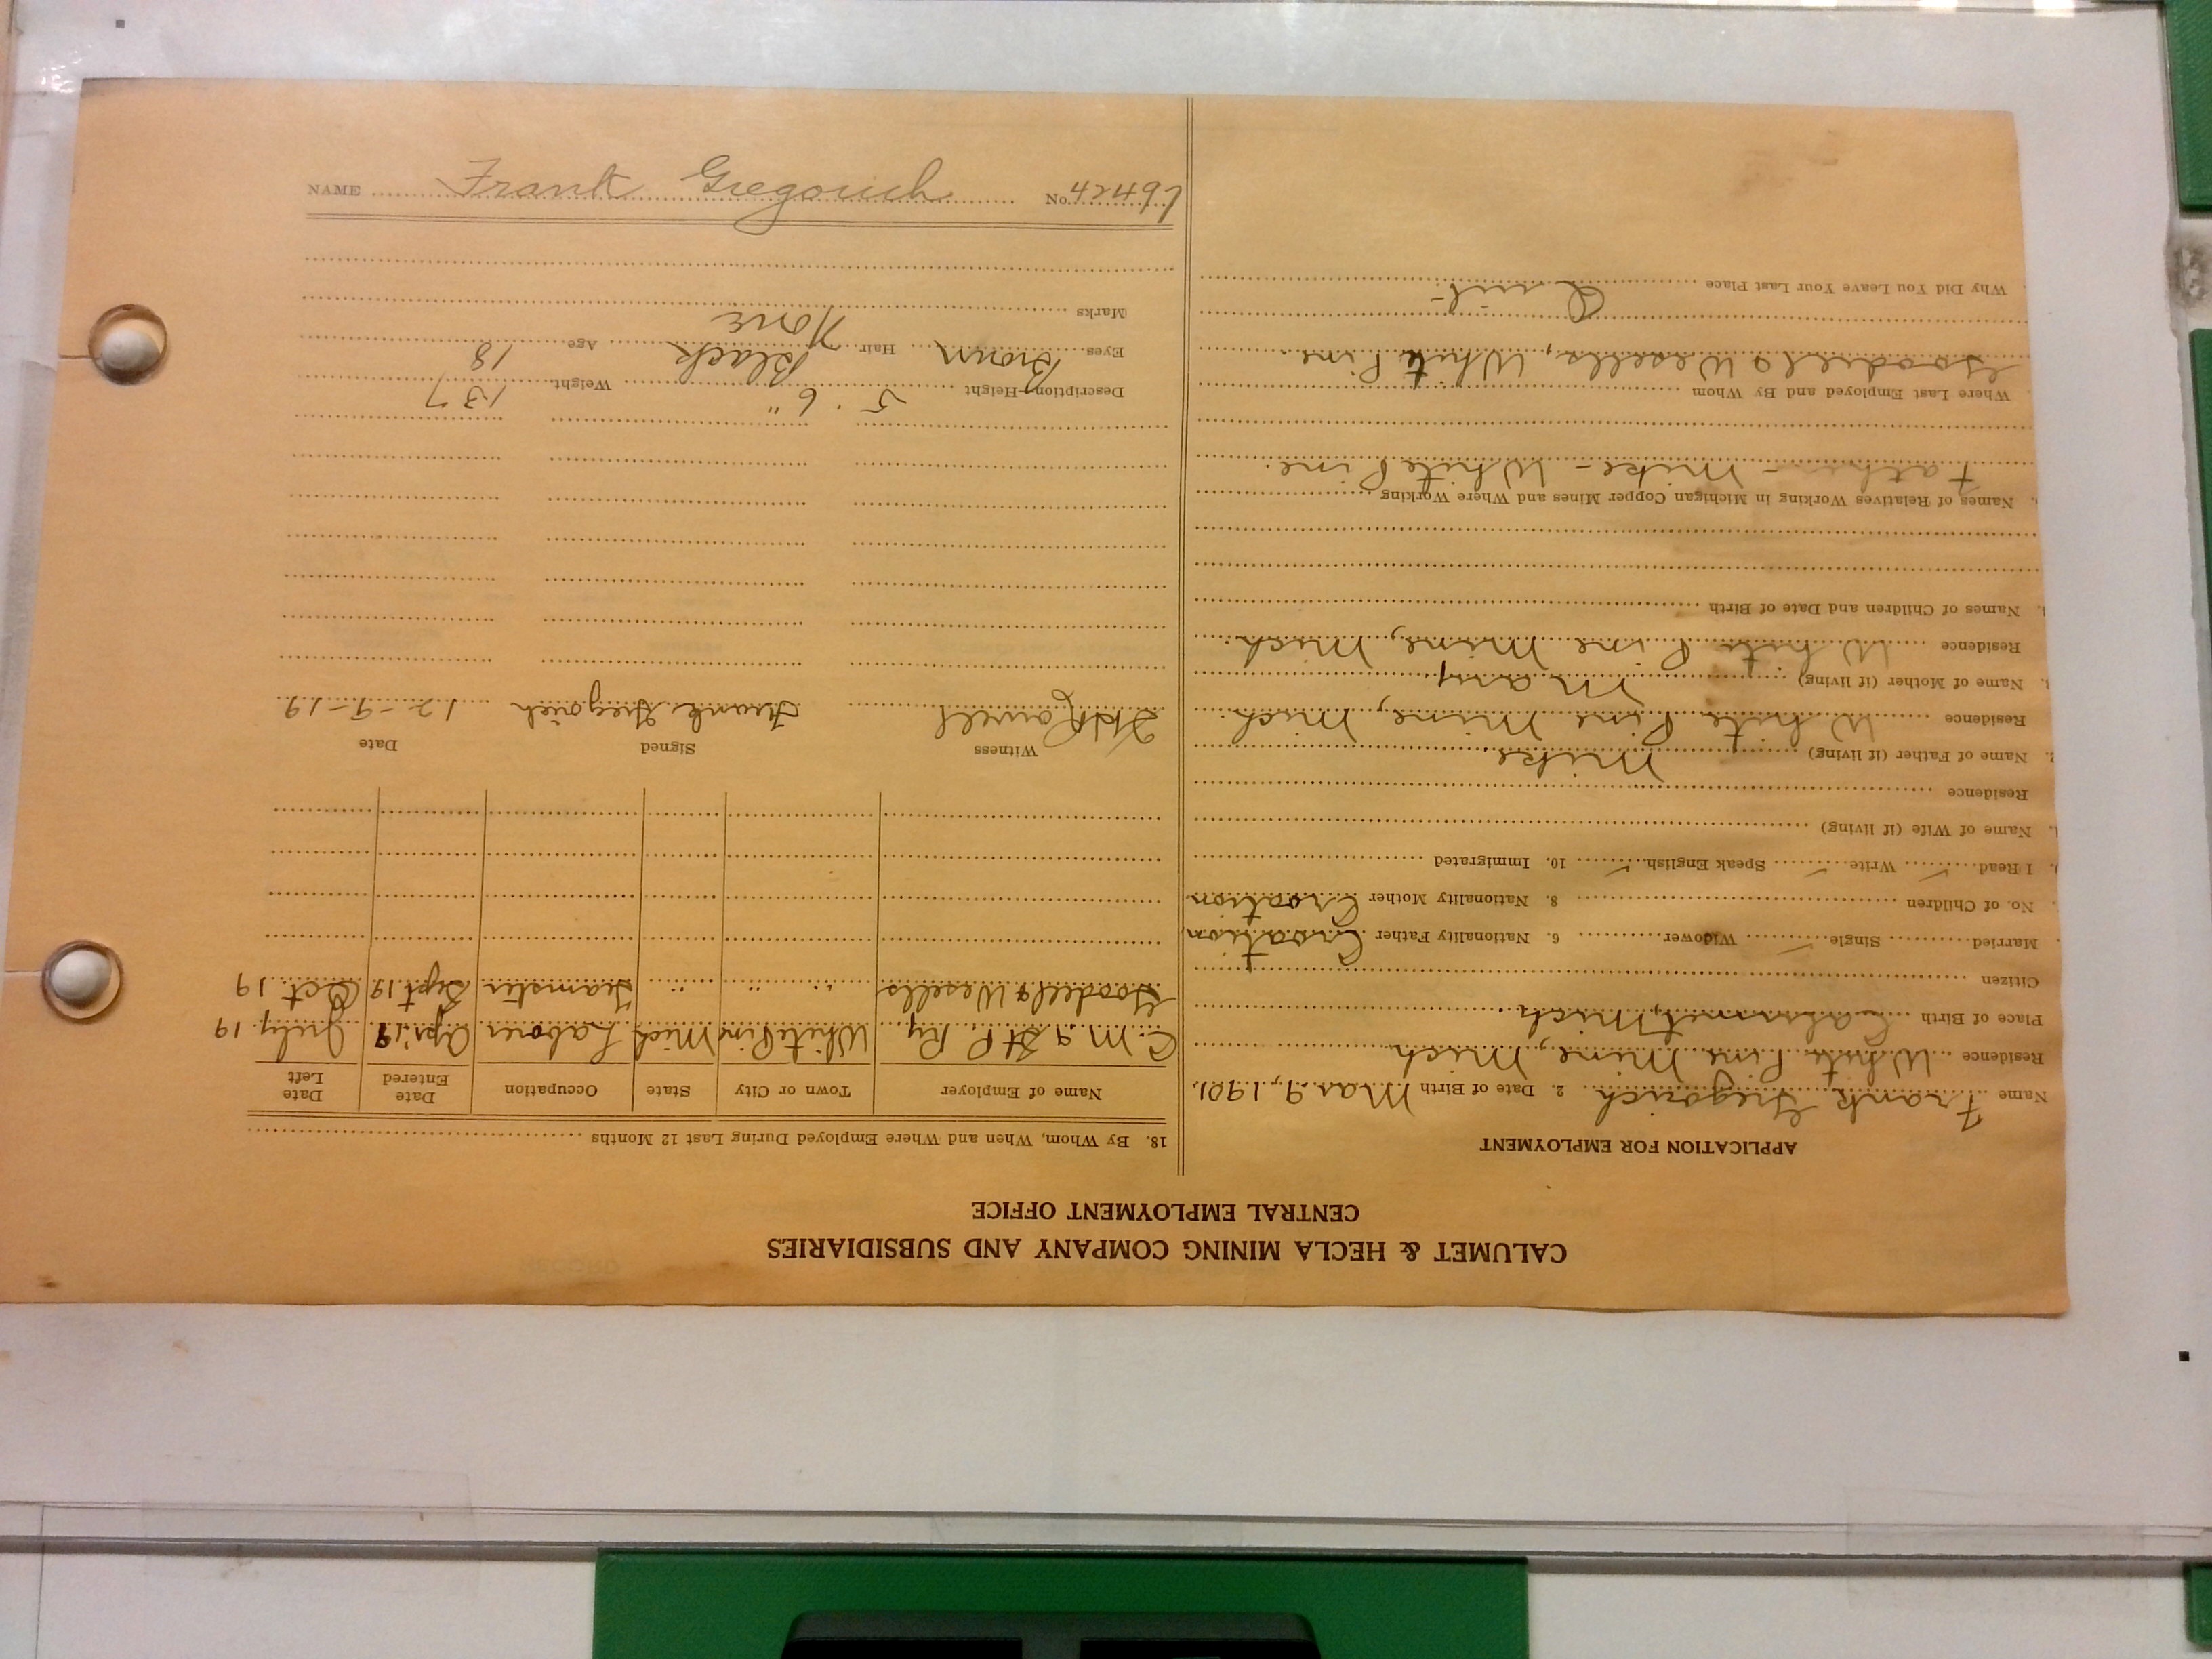 CALUMET & HECLA MINING COMPANY AND SUBSIDIARIES
CENTRAL EMPLOYMENT OFFICE
APPLICATION FOR EMPLOYMENT
Name Frank Gregorich 2. Date of Birth Mar 9, 1901.
Residence White Pine Mine, Mich
Place of Birth Calumet, Mich
Citizen
Married Single ✓ Widower 6. Nationality Father Croation
No. of Children 8. Nationality Mother Croation
I Read ✓ Write ✓ Speak English ✓ 10. Immigrated
Name of Wife (if living)
Residence
2. Name of Father (if living) Mike
Residence White Pine Mine, Mich.
3. Name of Mother (if living) Mary
Residence White Pine Mine, Mich.
Names of Children and Date of Birth
Names of Relatives Working in Michigan Copper Mines and Where Working
Father - Mike - White Pine.
Where Last Employed and By Whom
Goodel & Wesells, White Pine.
Why Did You Leave Your Last Place Quit-
18. By Whom, When and Where Employed During Last 12 Months
Name of Employer Town or City State Occupation Date Entered Date Left
C. M & St P. Ry. White Pine Mich Laborer Apr. 19 July 19
Goodel & Wesells " " Teamster Sept. 19 Oct. 19
Witness Signed Date
Powell Frank Gregorich 12-9-19
Description—Height 5' 6" Weight 137
Eyes Brown Hair Black Age 18
Marks None
NAME Frank Gregorich No. 42497